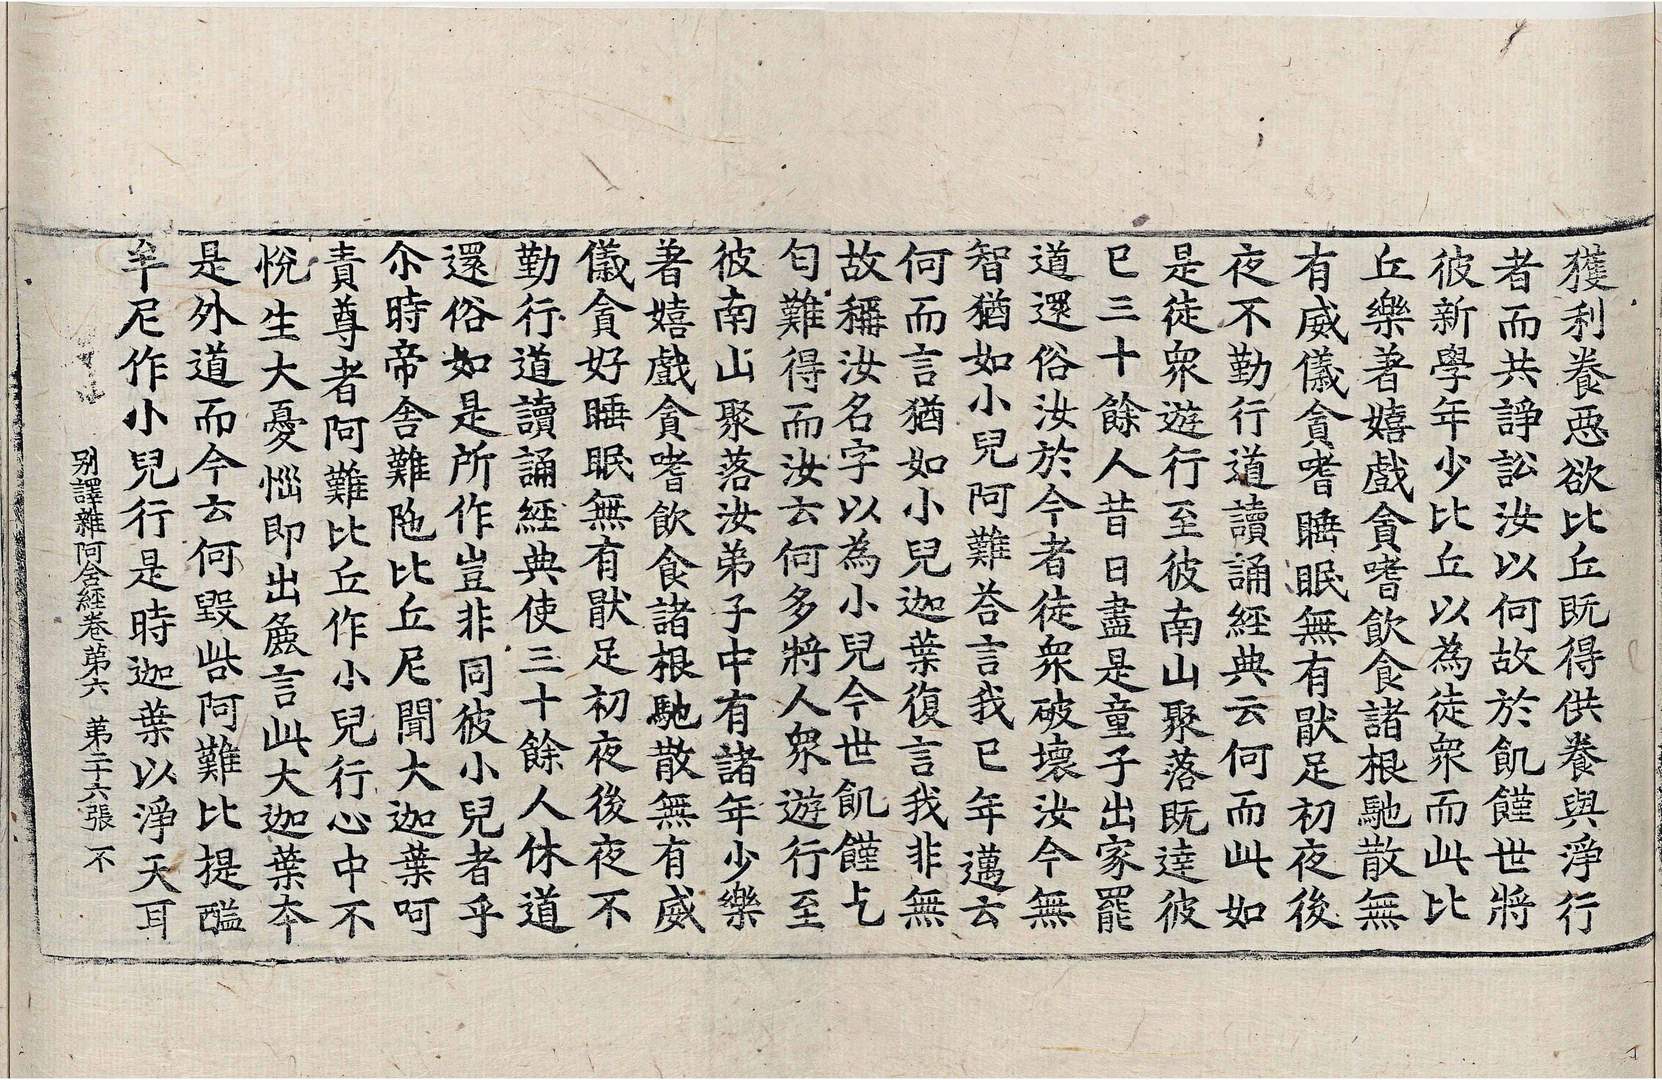 獲利養惡欲比丘既得供養與淨行
者而共諍訟汝以何故於飢饉世將
彼新學年少比丘以為徒衆而此比
丘樂著嬉戲貪嗜飲食諸根馳散無
有威儀貪嗜睡眠無有猒足初夜後
夜不勤行道讀誦經典云何而此如
是徒衆遊行至彼南山聚落既達彼
已三十餘人昔日盡是童子出家罷
道還俗汝於今者徒衆破壞汝今無
智猶如小兒阿難荅言我已年邁云
何而言猶如小兒迦葉復言我非無
故稱汝名字以為小兒今世飢饉乞
匂難得而汝云何多將人衆遊行至
彼南山聚落汝弟子中有諸年少樂
著嬉戲貪嗜飲食諸根馳散無有威
儀貪好睡眠無有猒足初夜後夜不
勤行道讀誦經典使三十餘人休道
還俗如是所作豈非同彼小兒者乎
尒時帝舍難陁比丘尼聞大迦葉呵
責尊者阿難比丘作小兒行心中不
悅生大憂惱即出麁言此大迦葉本
是外道而今云何毀呰阿難比提醯
牟尼作小兒行是時迦葉以淨天耳
别譯雜阿含經卷苐六 苐二十六張 不